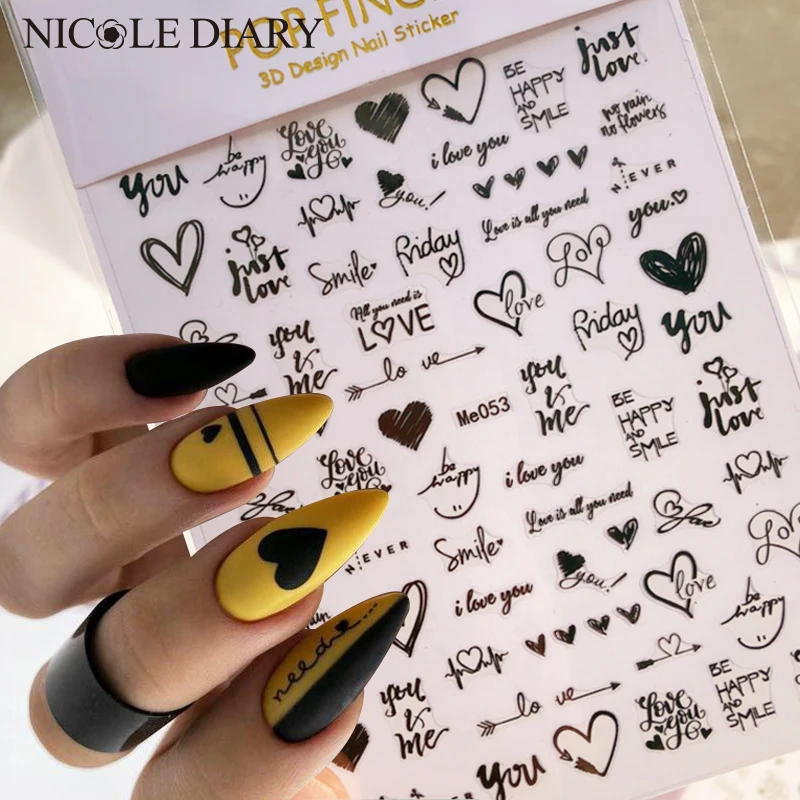 NICOLE DIARY
POP FING
3D Design Nail Sticker
just
love
BE
HAPPY
AND
SMILE
no rain
no flowers
Love
you
i love you
be
happy
you
you!
NEVER
Love is all you need
you
just
love
Smile
Friday
Love
love
All you need is
LOVE
you
&
me
Friday
you
lo ve
you
&
me
Me053
BE
HAPPY
AND
SMILE
just
love
Love
you
be
happy
i love you
Love is all you need
NEVER
Smile
you!
love
Love
need....
i love you
be
happy
you
&
me
lo ve
Love
you
BE
HAPPY
AND
SMILE
you